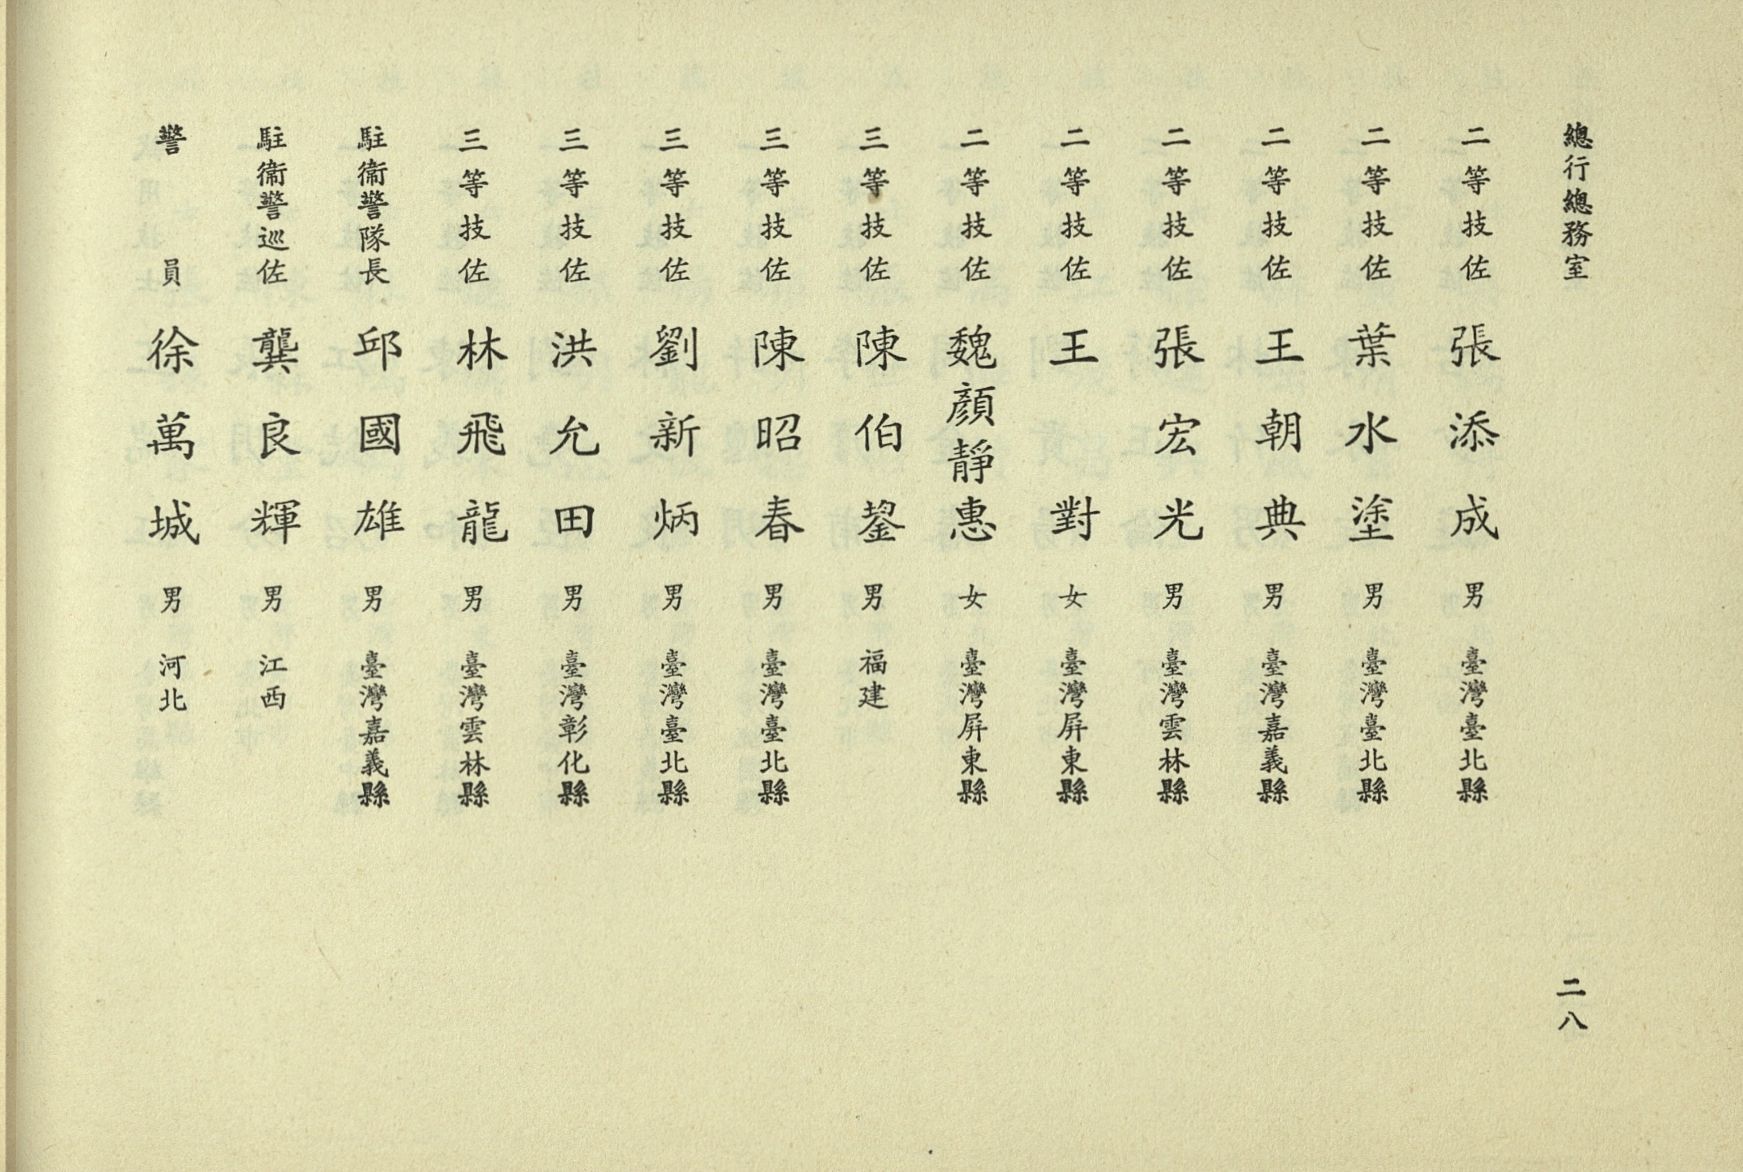 總行總務室
二八
二等技佐 張添成 男 臺灣臺北縣
二等技佐 葉水塗 男 臺灣臺北縣
二等技佐 王朝典 男 臺灣嘉義縣
二等技佐 張宏光 男 臺灣雲林縣
二等技佐 王對 女 臺灣屏東縣
二等技佐 魏顏靜惠 女 臺灣屏東縣
三等技佐 陳伯鋆 男 福建
三等技佐 陳昭春 男 臺灣臺北縣
三等技佐 劉新炳 男 臺灣臺北縣
三等技佐 洪允田 男 臺灣彰化縣
三等技佐 林飛龍 男 臺灣雲林縣
駐衞警隊長 邱國雄 男 臺灣嘉義縣
駐衞警巡佐 龔良輝 男 江西
警員 徐萬城 男 河北